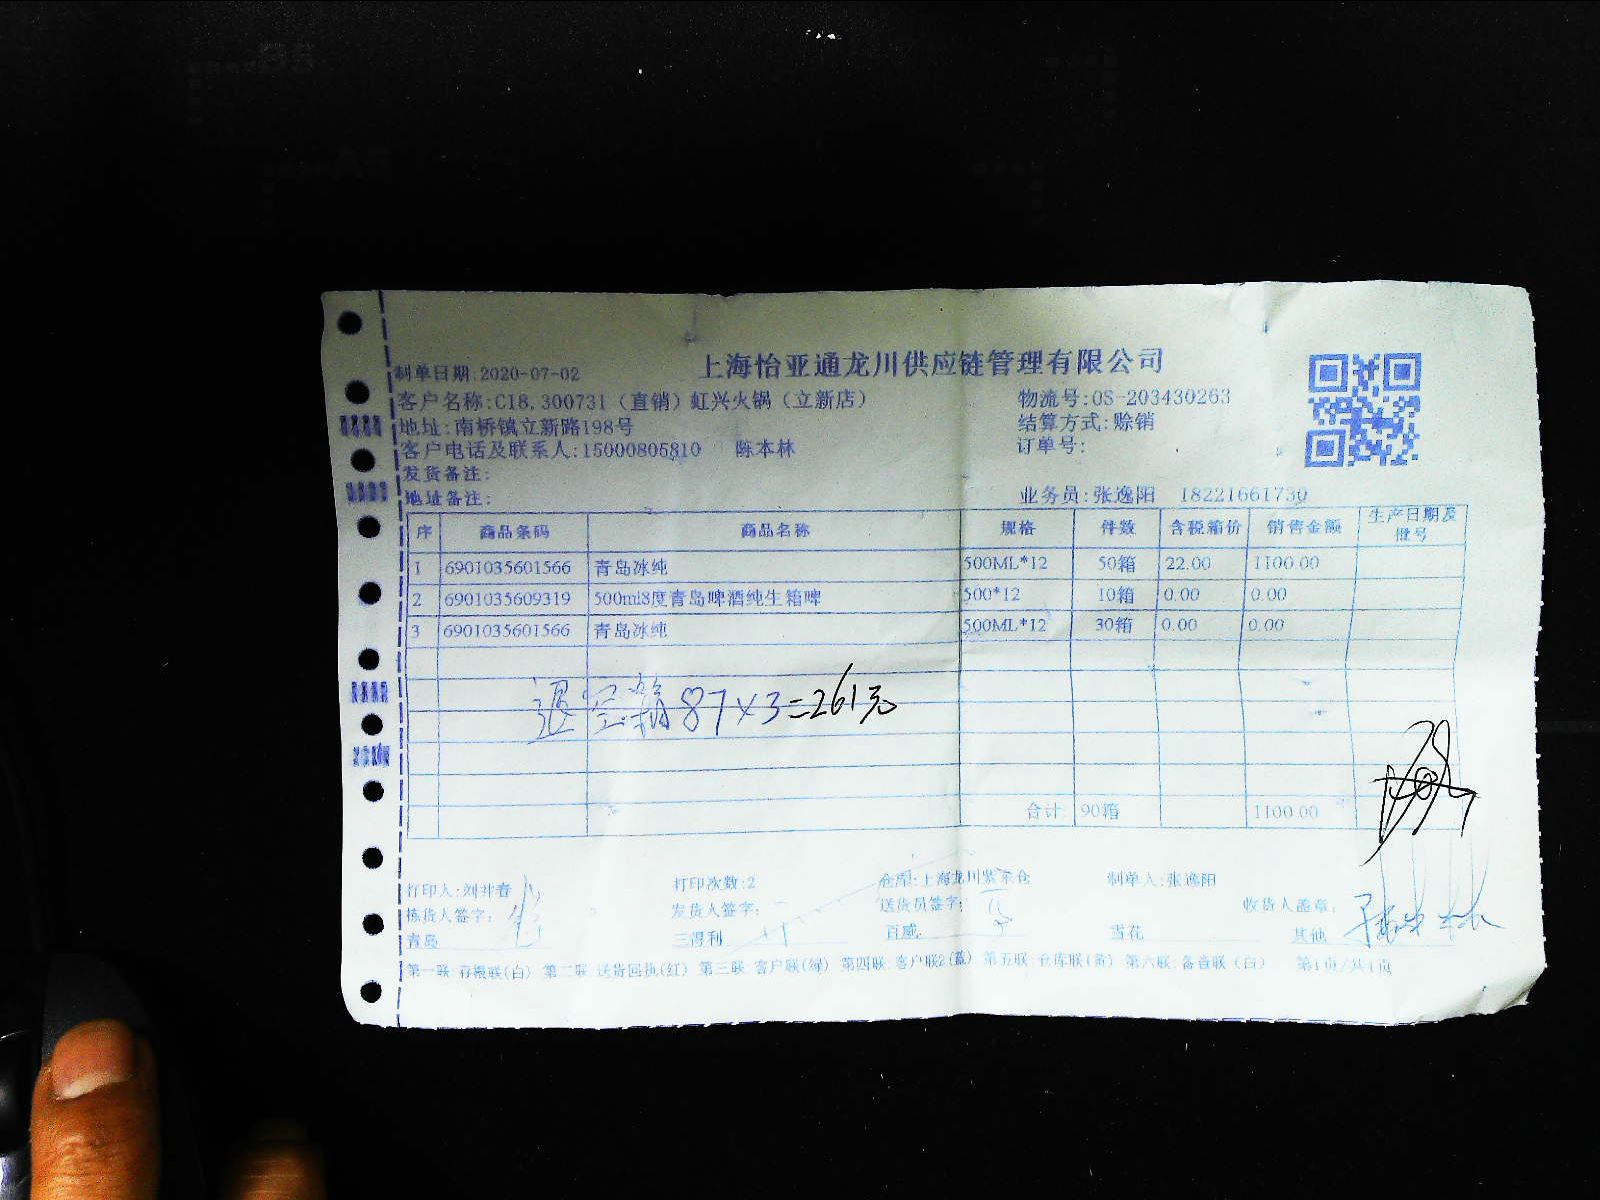 上海怡亚通龙川供应链管理有限公司
制单日期:2020-07-02
客户名称:C18,300731（直销）虹兴火锅（立新店） 物流号:OS-203430263
地址:南桥镇立新路198号 结算方式:赊销
客户电话及联系人:15000805810 陈本林 订单号:
发货备注:
地址备注: 业务员:张逸阳 18221661730
序 商品条码 商品名称 规格 件数 含税箱价 销售金额 生产日期及批号
1 6901035601566 青岛冰纯 500ML*12 50箱 22.00 1100.00
2 6901035609319 500ml8度青岛啤酒纯生箱啤 500*12 10箱 0.00 0.00
3 6901035601566 青岛冰纯 500ML*12 30箱 0.00 0.00
退空箱87×3=261元
合计 90箱 1100.00
打印人:刘 春 打印次数:2 仓库:上海龙川紫东仓 制单人:张逸阳
拣货人签字: 发货人签字: 送货员签字: 收货人盖章:
青岛 三得利 百威 雪花 其他
第一联:存根联(白) 第二联:送货回执(红) 第三联:客户联(绿) 第四联:客户联2(蓝) 第五联:仓库联(黄) 第六联:备查联(白) 第1页/共1页